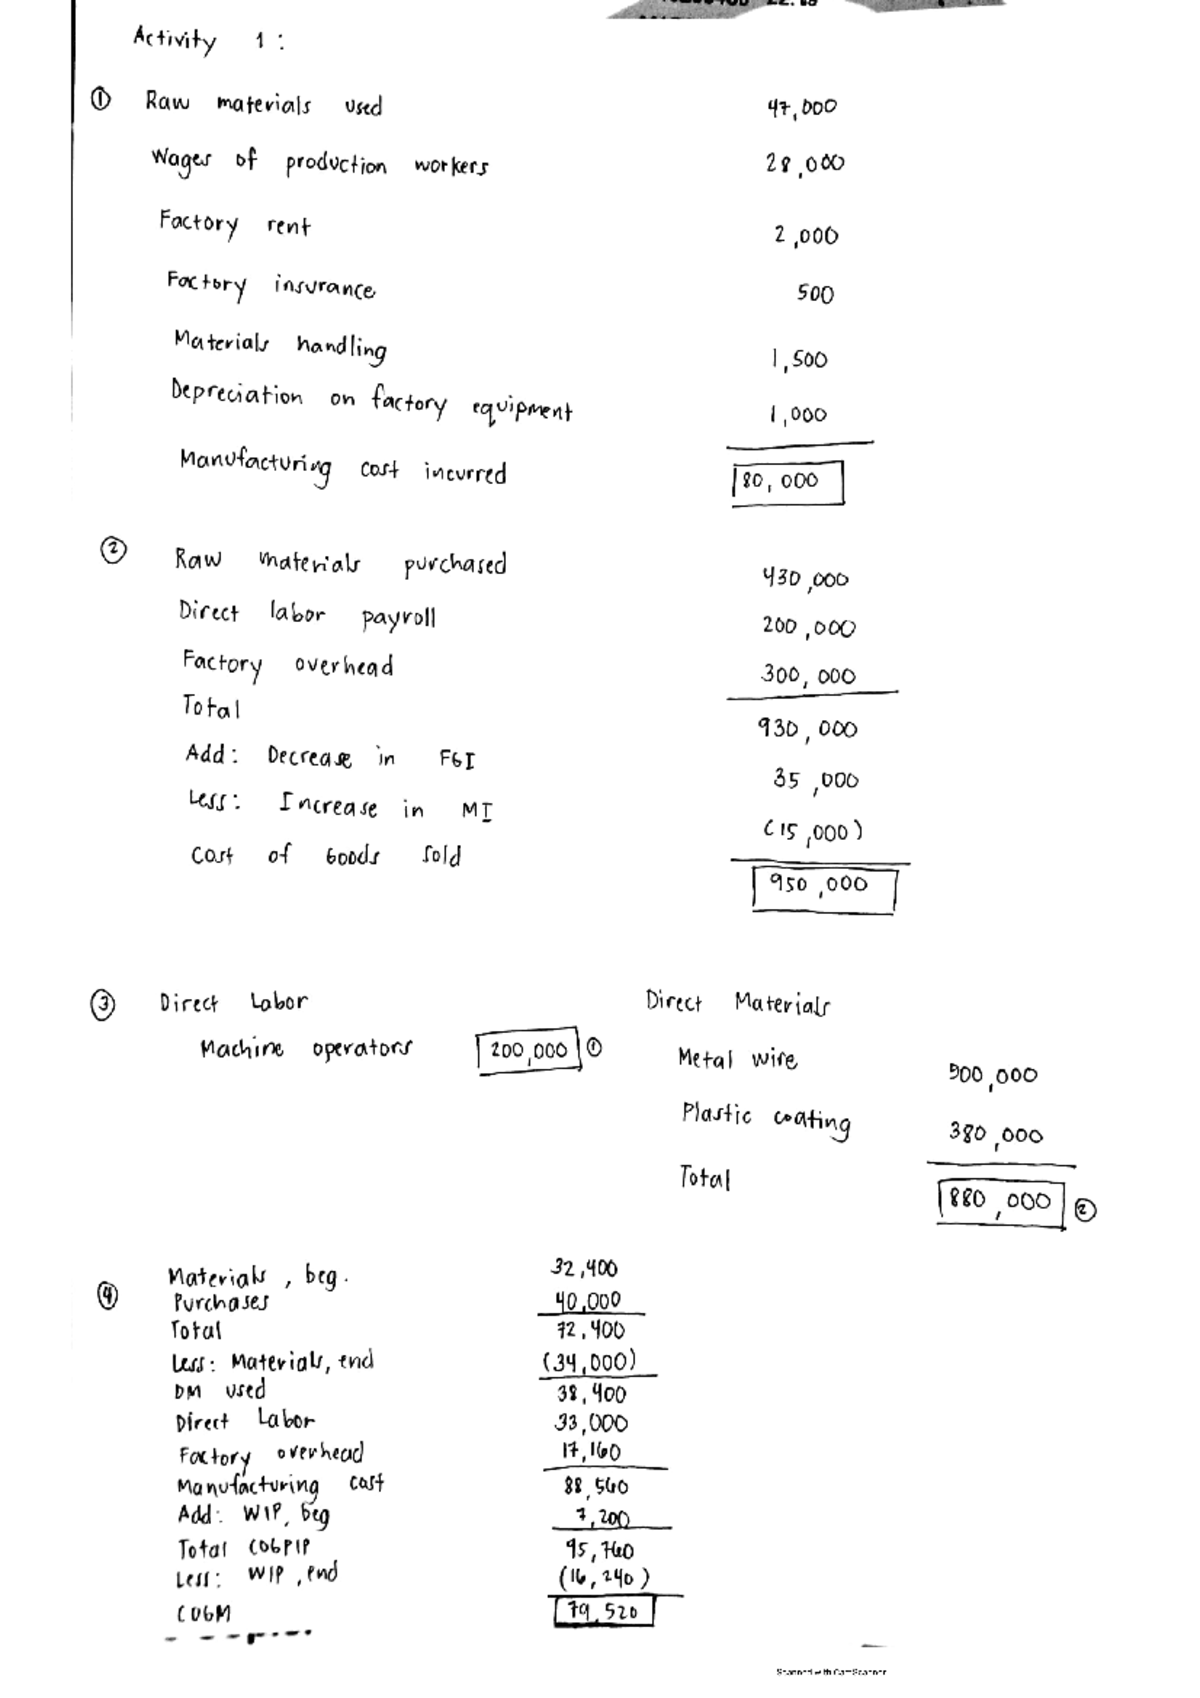 Activity 1:
① Raw materials used 47,000
Wages of production workers 28,000
Factory rent 2,000
Factory insurance 500
Materials handling 1,500
Depreciation on factory equipment 1,000
Manufacturing cost incurred 80,000
② Raw materials purchased 430,000
Direct labor payroll 200,000
Factory overhead 300,000
Total 930,000
Add: Decrease in FGI 35,000
Less: Increase in MI (15,000)
Cost of Goods Sold 950,000
③ Direct Labor Direct Materials
Machine operators 200,000 ① Metal wire 500,000
Plastic coating 380,000
Total 880,000 ②
④ Materials, beg. 32,400
Purchases 40,000
Total 72,400
Less: Materials, end (34,000)
DM used 38,400
Direct Labor 33,000
Factory overhead 17,160
Manufacturing cost 88,560
Add: WIP, beg 7,200
Total COGPIP 95,760
Less: WIP, end (16,240)
COGM 79,520
Scanned with CamScanner